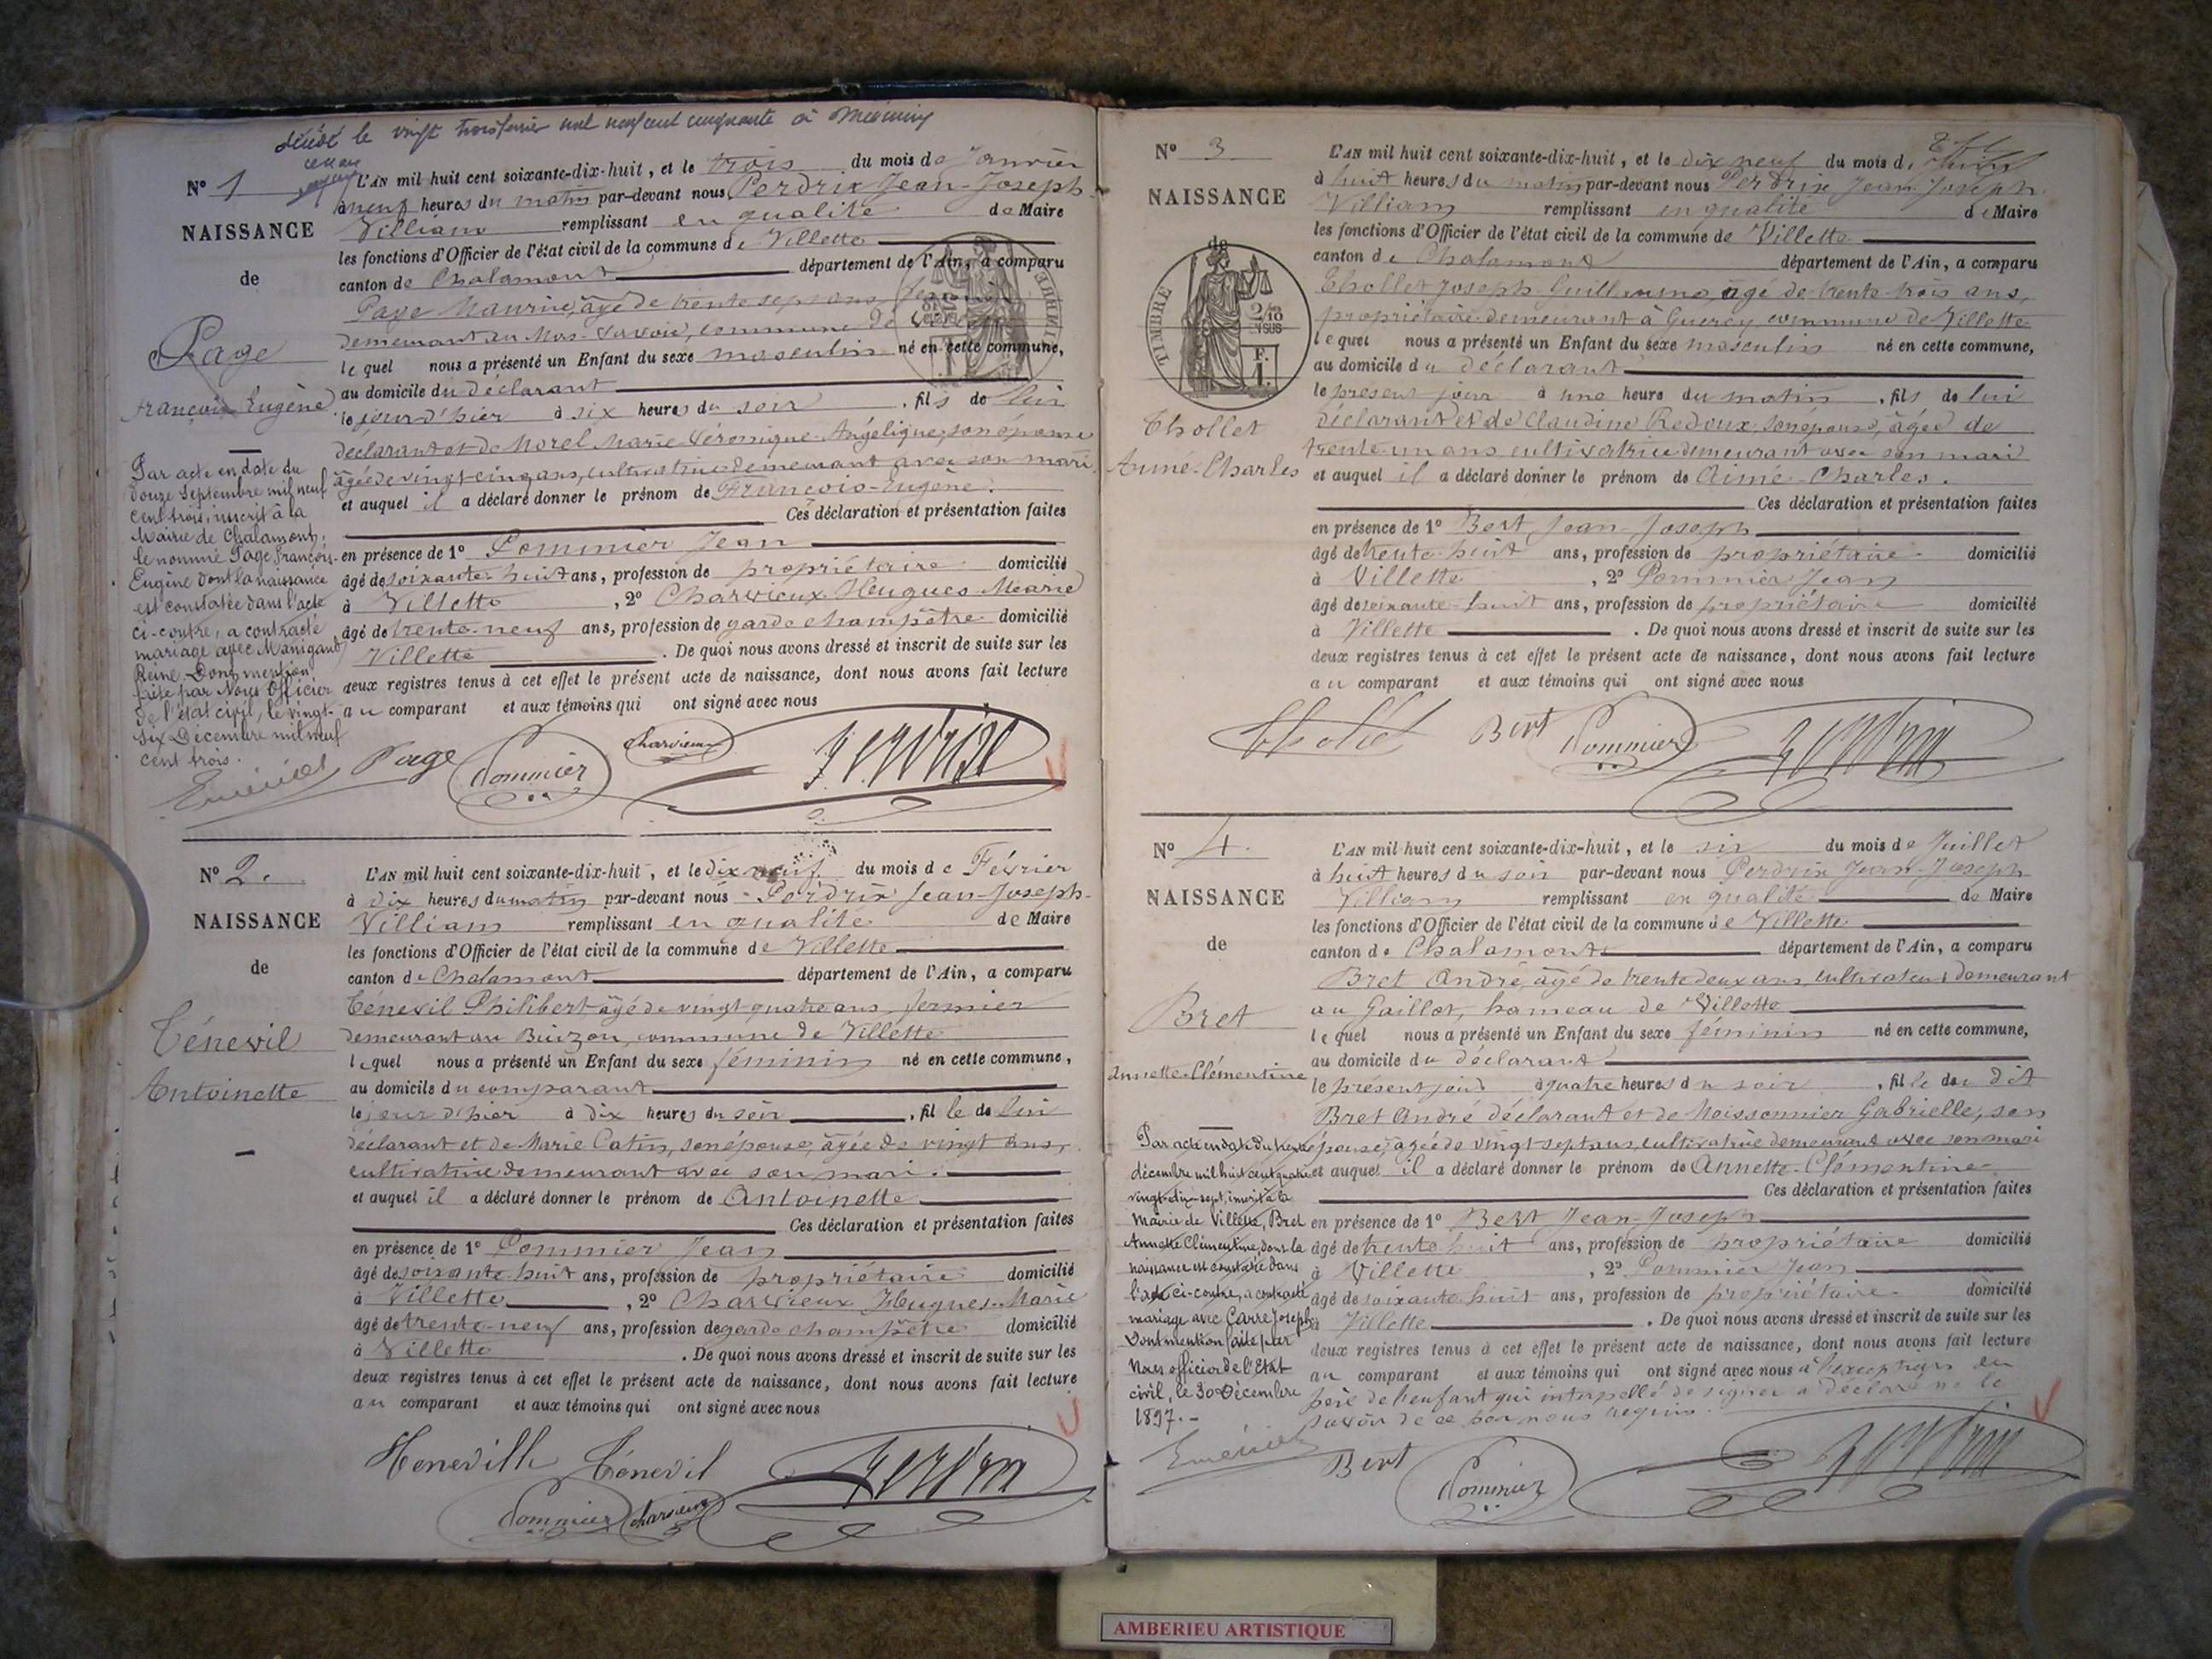 décédé le vingt trois février mil neuf cent cinquante à
Nº 1
NAISSANCE
de
Page
François Eugène
Par acte en date du
douze Septembre mil neuf
cent trois, inscrit à la
Mairie de Chalamont,
le nommé Page François-
Eugène dont la naissance
est constatée dans l'acte
ci-contre, a contracté
mariage avec Manigand
Reine. Dont mention
faite par Nous Officier
de l'état civil, le vingt-
six Décembre mil neuf
cent trois.
L'AN mil huit cent soixante-dix-huit, et le trois du mois de Janvier
à neuf heures du matin par-devant nous Perdrix Jean-Joseph-
Villiam remplissant en qualité de Maire
les fonctions d'Officier de l'état civil de la commune de Villette
canton de Chalamont département de l'Ain, a comparu
Page Maurice, âgé de trente sept ans, fermier
demeurant au Mas-Savoie, commune de Villette
lequel nous a présenté un Enfant du sexe masculin né en cette commune,
au domicile du déclarant
le jour d'hier à six heures du soir, fils de lui
déclarant et de Morel Marie Véronique Angélique, son épouse
âgée de vingt-cinq ans, cultivatrice demeurant avec son mari
et auquel il a déclaré donner le prénom de François-Eugène.
Ces déclaration et présentation faites
en présence de 1º Pommier Jean
âgé de soixante-huit ans, profession de propriétaire domicilié
à Villette, 2º Charvieux Hugues-Marie
âgé de trente-neuf ans, profession de garde champêtre domicilié
Villette. De quoi nous avons dressé et inscrit de suite sur les
deux registres tenus à cet effet le présent acte de naissance, dont nous avons fait lecture
au comparant et aux témoins qui ont signé avec nous
Page Pommier Charvieux Perdrix
Nº 2.
NAISSANCE
de
Ténevil
Antoinette
L'AN mil huit cent soixante-dix-huit, et le dix neuf du mois de Février
à dix heures du matin par-devant nous Perdrix Jean-Joseph-
Villiam remplissant en qualité de Maire
les fonctions d'Officier de l'état civil de la commune de Villette
canton de Chalamont département de l'Ain, a comparu
Ténevil Philibert âgé de vingt quatre ans, fermier
demeurant au Buizon, commune de Villette
lequel nous a présenté un Enfant du sexe féminin né en cette commune,
au domicile du comparant
le jour d'hier à dix heures du soir, fille de lui
déclarant et de Marie Catin, son épouse, âgée de vingt ans,
cultivatrice demeurant avec son mari.
et auquel il a déclaré donner le prénom de Antoinette
Ces déclaration et présentation faites
en présence de 1º Pommier Jean
âgé de soixante-huit ans, profession de propriétaire domicilié
à Villette, 2º Charvieux Hugues-Marie
âgé de trente-neuf ans, profession de garde champêtre domicilié
à Villette. De quoi nous avons dressé et inscrit de suite sur les
deux registres tenus à cet effet le présent acte de naissance, dont nous avons fait lecture
au comparant et aux témoins qui ont signé avec nous
Heneville Ténevil Perdrix
Pommier Charvieux
Nº 3
NAISSANCE
de
TIMBRE
2/10
EN SUS
F.
1.
Thollet
Aimé-Charles
L'AN mil huit cent soixante-dix-huit, et le dix neuf du mois de Juin
à huit heures du matin par-devant nous Perdrix Jean-Joseph-
Villiam remplissant en qualité de Maire
les fonctions d'Officier de l'état civil de la commune de Villette
canton de Chalamont département de l'Ain, a comparu
Thollet Joseph-Guillaume, âgé de trente-trois ans,
propriétaire demeurant à Guercy, commune de Villette
lequel nous a présenté un Enfant du sexe masculin né en cette commune,
au domicile du déclarant
le présent jour à une heure du matin, fils de lui
déclarant et de Claudine Redoux, son épouse, âgée de
trente-un ans, cultivatrice demeurant avec son mari
et auquel il a déclaré donner le prénom de Aimé-Charles.
Ces déclaration et présentation faites
en présence de 1º Bert Jean-Joseph
âgé de trente-huit ans, profession de propriétaire domicilié
à Villette, 2º Pommier Jean
âgé de soixante-huit ans, profession de propriétaire domicilié
à Villette. De quoi nous avons dressé et inscrit de suite sur les
deux registres tenus à cet effet le présent acte de naissance, dont nous avons fait lecture
au comparant et aux témoins qui ont signé avec nous
Thollet Bert Pommier Perdrix
Nº 4.
NAISSANCE
de
Bret
Annette-Clémentine
Par acte en date du trente
décembre mil huit cent quatre
vingt-dix-sept, inscrit à la
Mairie de Villette, Bret
Annette Clémentine, dont la
naissance est constatée dans
l'acte ci-contre, a contracté
mariage avec Carré Joseph
Dont mention faite par
Nous officier de l'Etat
civil, le 30 Décembre
1897.-
L'AN mil huit cent soixante-dix-huit, et le six du mois de Juillet
à huit heures du soir par-devant nous Perdrix Jean-Joseph
Villiam remplissant en qualité de Maire
les fonctions d'Officier de l'état civil de la commune de Villette
canton de Chalamont département de l'Ain, a comparu
Bret André, âgé de trente deux ans, cultivateur, demeurant
au Gaillot, hameau de Villette
lequel nous a présenté un Enfant du sexe féminin né en cette commune,
au domicile du déclarant
le présent jour à quatre heures du soir, fille du dit
Bret André déclarant et de Moissonnier Gabrielle, son
épouse, âgée de vingt sept ans, cultivatrice demeurant avec son mari
et auquel il a déclaré donner le prénom de Annette-Clémentine.
Ces déclaration et présentation faites
en présence de 1º Bert Jean-Joseph
âgé de trente huit ans, profession de propriétaire domicilié
à Villette, 2º Pommier Jean
âgé de soixante-huit ans, profession de propriétaire domicilié
à Villette. De quoi nous avons dressé et inscrit de suite sur les
deux registres tenus à cet effet le présent acte de naissance, dont nous avons fait lecture
au comparant et aux témoins qui ont signé avec nous à l'exception du
père de l'enfant qui interpellé de signer a déclaré ne le
savoir de ce par nous requis.
Bert Pommier Perdrix
AMBERIEU ARTISTIQUE